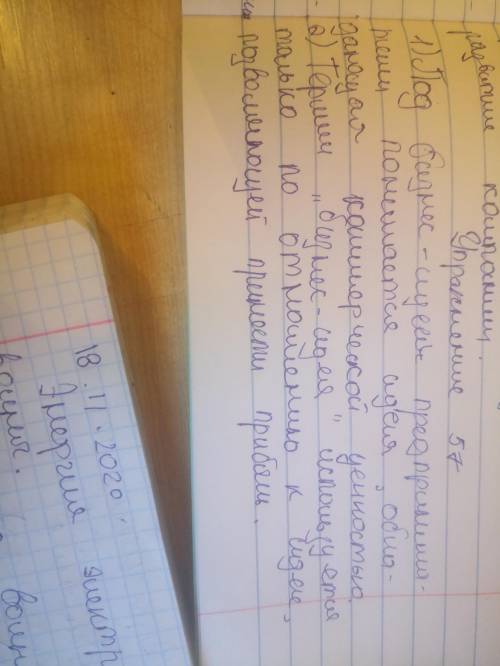 развитие компании.
Упражнение 57
1) Под бизнес-идеей предпринима-
телем понимается идея, обла-
дающая коммерческой ценностью.
2) Термин „бизнес-идея" используется
только по отношению к идее,
позволяющей принести прибыль.
18.11.2020.
Энергия электр